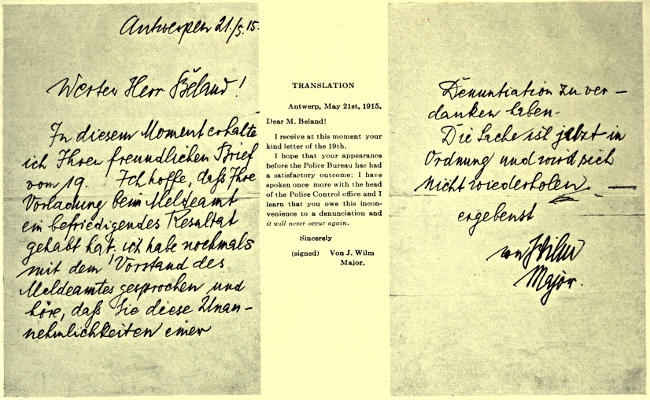 Antwerpen 21./5.15.
Werter Herr Béland!
In diesem Moment erhalte
ich Ihren freundlichen Brief
vom 19. Ich hoffe, daß Ihre
Vorladung beim Meldeamt
ein befriedigendes Resultat
gehabt hat. ich habe nochmals
mit dem Vorstand des
Meldeamtes gesprochen und
höre, daß Sie diese Unan-
nehmlichkeiten einer
TRANSLATION
Antwerp, May 21st, 1915.
Dear M. Beland!
I receive at this moment your
kind letter of the 19th.
I hope that your appearance
before the Police Bureau has had
a satisfactory outcome; I have
spoken once more with the head
of the Police Control office and I
learn that you owe this incon-
venience to a denunciation and
it will never occur again.
Sincerely
(signed) Von J. Wilm
Major.
Denuntiation zu ver-
danken haben.
Die Sache ist jetzt in
Ordnung und wird sich
nicht wiederholen.
ergebenst
von J Wilm
Major.